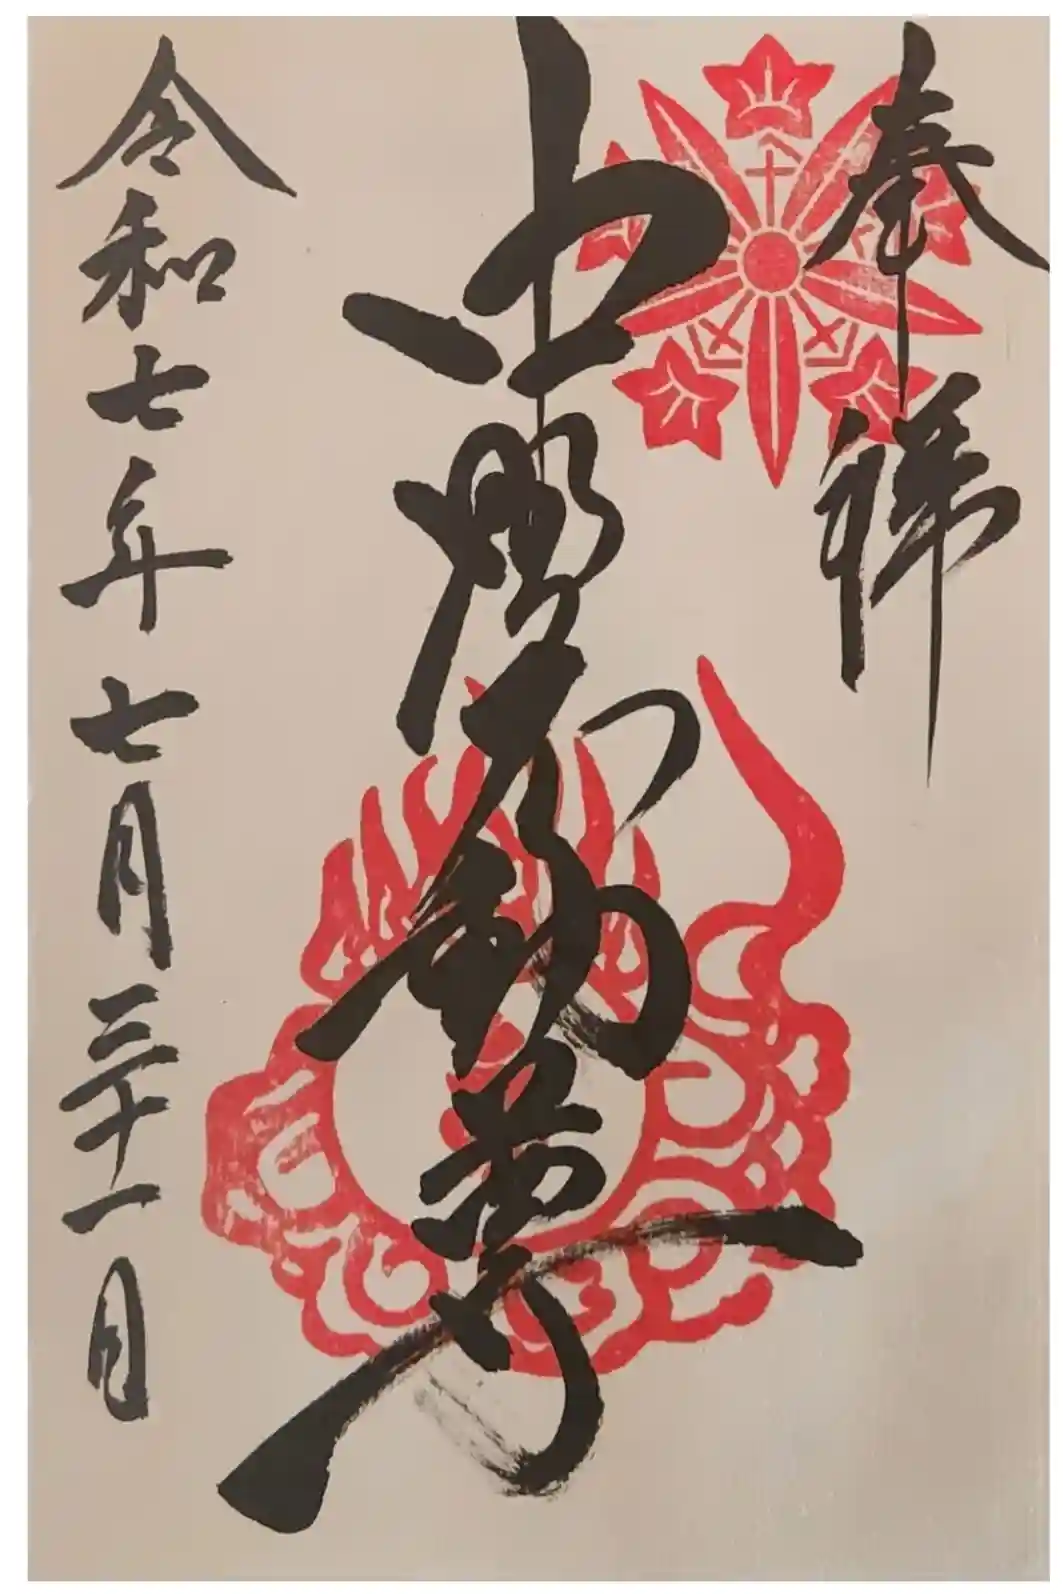 奉拝
不動尊
令和七年七月三十一日